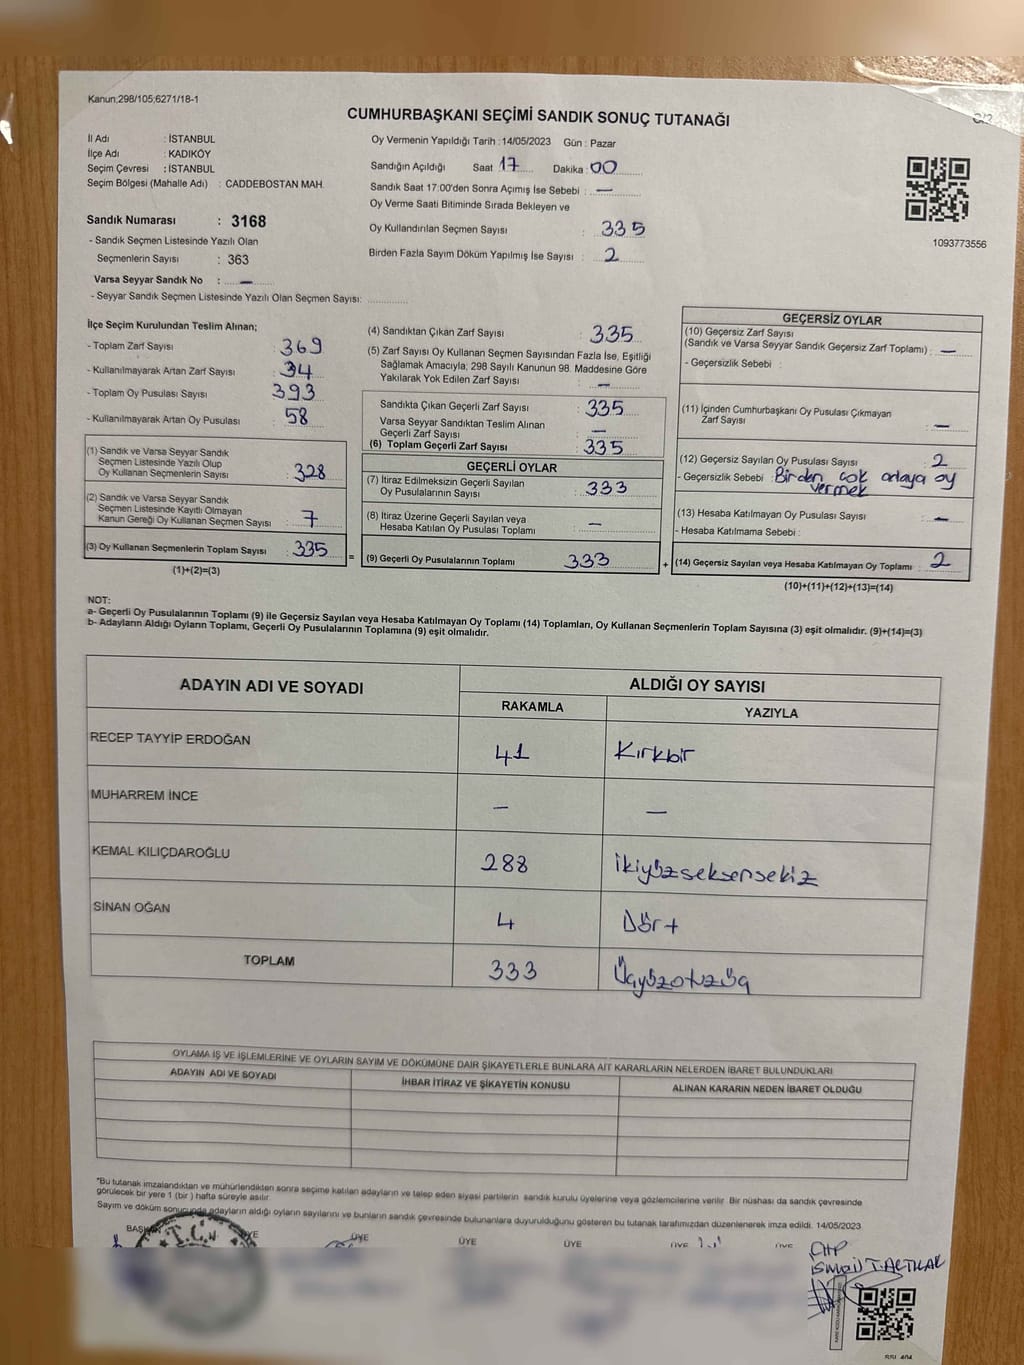 Kanun;298/105;6271/18-1
CUMHURBAŞKANI SEÇİMİ SANDIK SONUÇ TUTANAĞI
İl Adı : İSTANBUL
İlçe Adı : KADIKÖY
Seçim Çevresi : İSTANBUL
Seçim Bölgesi (Mahalle Adı) : CADDEBOSTAN MAH.
Sandık Numarası : 3168
- Sandık Seçmen Listesinde Yazılı Olan
Seçmenlerin Sayısı : 363
Varsa Seyyar Sandık No : —
- Seyyar Sandık Seçmen Listesinde Yazılı Olan Seçmen Sayısı:
Oy Vermenin Yapıldığı Tarih : 14/05/2023 Gün : Pazar
Sandığın Açıldığı Saat 17 Dakika : 00
Sandık Saat 17:00'den Sonra Açımış İse Sebebi : —
Oy Verme Saati Bitiminde Sırada Bekleyen ve
Oy Kullandırılan Seçmen Sayısı : 335
Birden Fazla Sayım Döküm Yapılmış İse Sayısı : 2
1093773556
İlçe Seçim Kurulundan Teslim Alınan;
- Toplam Zarf Sayısı : 369
- Kullanılmayarak Artan Zarf Sayısı : 34
- Toplam Oy Pusulası Sayısı : 393
- Kullanılmayarak Artan Oy Pusulası : 58
(1) Sandık ve Varsa Seyyar Sandık
Seçmen Listesinde Yazılı Olup
Oy Kullanan Seçmenlerin Sayısı : 328
(2) Sandık ve Varsa Seyyar Sandık
Seçmen Listesinde Kayıtlı Olmayan
Kanun Gereği Oy Kullanan Seçmen Sayısı : 7
(3) Oy Kullanan Seçmenlerin Toplam Sayısı : 335 =
(1)+(2)=(3)
(4) Sandıktan Çıkan Zarf Sayısı : 335
(5) Zarf Sayısı Oy Kullanan Seçmen Sayısından Fazla İse, Eşitliği
Sağlamak Amacıyla; 298 Sayılı Kanunun 98. Maddesine Göre
Yakılarak Yok Edilen Zarf Sayısı : —
Sandıkta Çıkan Geçerli Zarf Sayısı : 335
Varsa Seyyar Sandıktan Teslim Alınan
Geçerli Zarf Sayısı : —
(6) Toplam Geçerli Zarf Sayısı : 335
GEÇERLİ OYLAR
(7) İtiraz Edilmeksizin Geçerli Sayılan
Oy Pusulalarının Sayısı : 333
(8) İtiraz Üzerine Geçerli Sayılan veya
Hesaba Katılan Oy Pusulası Toplamı : —
(9) Geçerli Oy Pusulalarının Toplamı : 333 +
GEÇERSİZ OYLAR
(10) Geçersiz Zarf Sayısı
(Sandık ve Varsa Seyyar Sandık Geçersiz Zarf Toplamı) : —
- Geçersizlik Sebebi :
(11) İçinden Cumhurbaşkanı Oy Pusulası Çıkmayan
Zarf Sayısı : —
(12) Geçersiz Sayılan Oy Pusulası Sayısı : 2
- Geçersizlik Sebebi : Birden çok adaya oy
vermek
(13) Hesaba Katılmayan Oy Pusulası Sayısı : —
- Hesaba Katılmama Sebebi :
(14) Geçersiz Sayılan veya Hesaba Katılmayan Oy Toplamı : 2
(10)+(11)+(12)+(13)=(14)
NOT:
a- Geçerli Oy Pusulalarının Toplamı (9) ile Geçersiz Sayılan veya Hesaba Katılmayan Oy Toplamı (14) Toplamları, Oy Kullanan Seçmenlerin Toplam Sayısına (3) eşit olmalıdır. (9)+(14)=(3)
b- Adayların Aldığı Oyların Toplamı, Geçerli Oy Pusulalarının Toplamına (9) eşit olmalıdır.
ADAYIN ADI VE SOYADI ALDIĞI OY SAYISI
RAKAMLA YAZIYLA
RECEP TAYYİP ERDOĞAN 41 Kırkbir
MUHARREM İNCE — —
KEMAL KILIÇDAROĞLU 288 İkiyüzseksensekiz
SİNAN OĞAN 4 Dört
TOPLAM 333 Üçyüzotuzüç
OYLAMA İŞ VE İŞLEMLERİNE VE OYLARIN SAYIM VE DÖKÜMÜNE DAİR ŞİKAYETLERLE BUNLARA AİT KARARLARIN NELERDEN İBARET BULUNDUKLARI
ADAYIN ADI VE SOYADI İHBAR İTİRAZ VE ŞİKAYETİN KONUSU ALINAN KARARIN NEDEN İBARET OLDUĞU
*Bu tutanak imzalandıktan ve mühürlendikten sonra seçime katılan adayların ve talep eden siyasi partilerin sandık kurulu üyelerine veya gözlemcilerine verilir. Bir nüshası da sandık çevresinde
görülecek bir yere 1 (bir ) hafta süreyle asılır.
Sayım ve döküm sonucunda adayların aldığı oyların sayılarını ve bunların sandık çevresinde bulunanlara duyurulduğunu gösteren bu tutanak tarafımızdan düzenlenerek imza edildi. 14/05/2023
ÜYE ÜYE ÜYE ÜYE ÜYE
T.C.